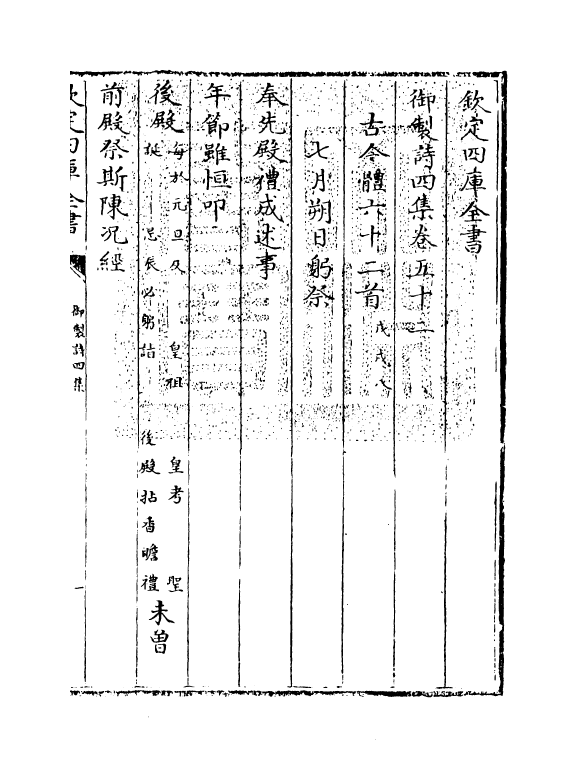 欽定四庫全書
御製詩四集卷五十二
古今體六十二首戊戌八
七月朔日躬祭
奉先殿禮成述事
年節雖恒叩
後殿每於元旦及 皇祖 皇考 聖
誕 忌辰必躬詣 後殿拈香瞻禮未曾
前殿祭斯陳況經
欽定四庫全書
御製詩四集
一